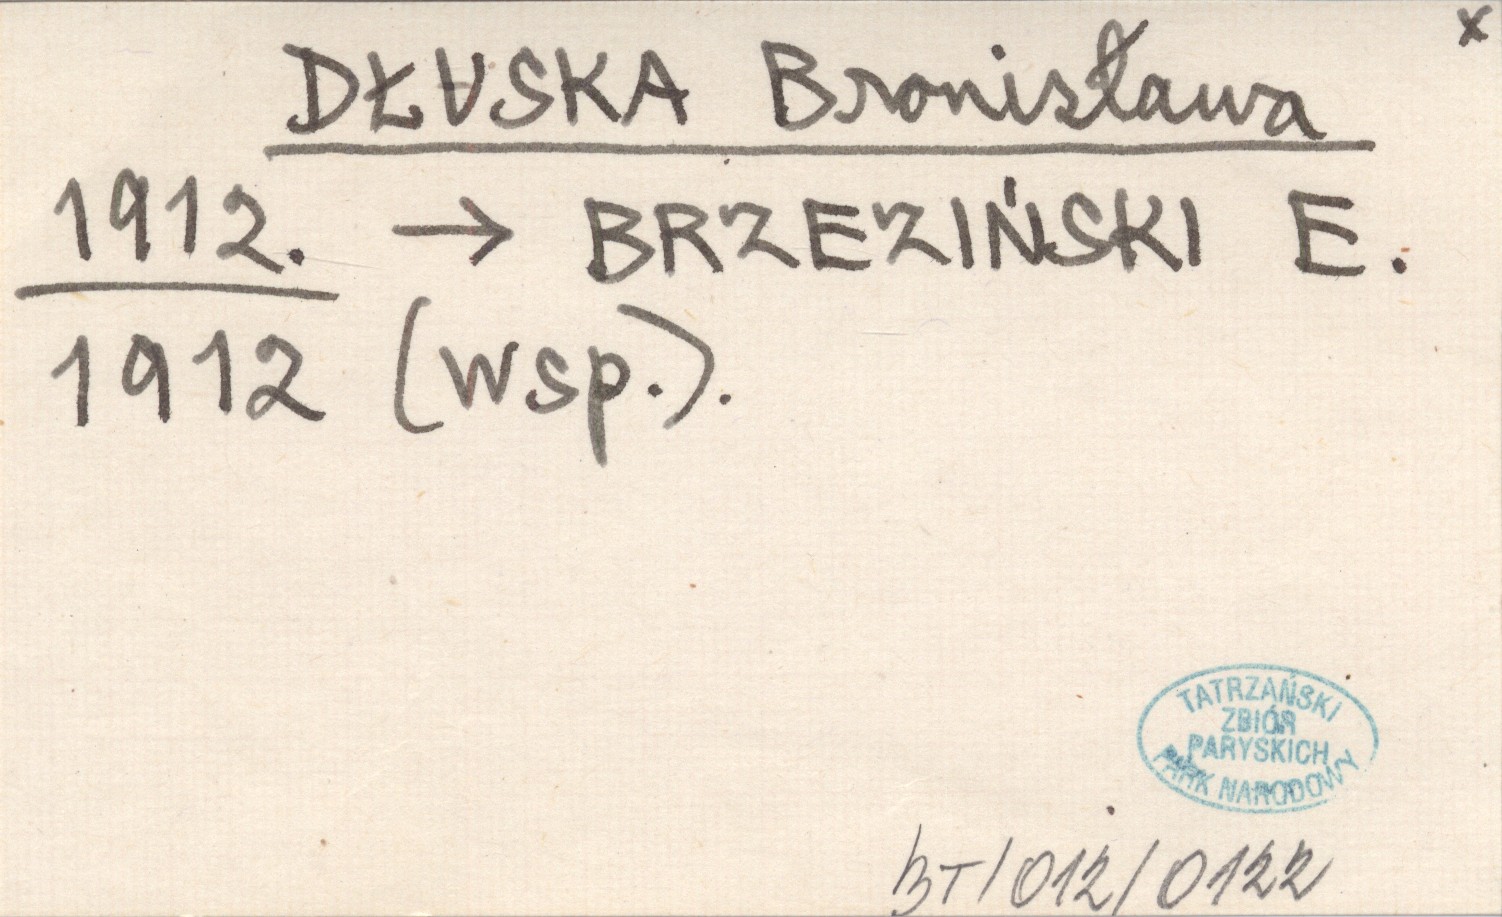 x
DŁUSKA Bronisława
1912. → BRZEZIŃSKI E.
1912 (wsp.).
TATRZAŃSKI
ZBIÓR
PARYSKICH
PARK NARODOWY
BT/012/0122